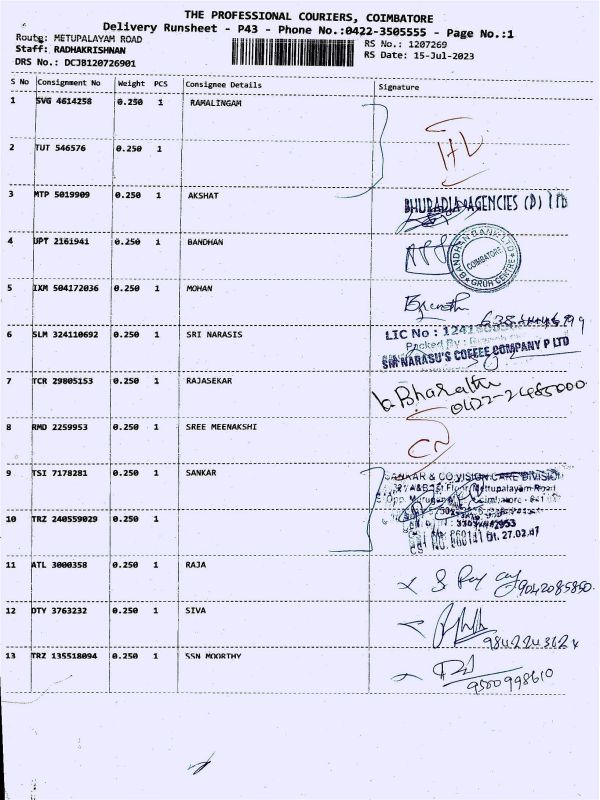 THE PROFESSIONAL COURIERS, COIMBATORE
Delivery Runsheet - P43 - Phone No.:0422-3505555 - Page No.:1
Route: METUPALAYAM ROAD
RS No.: 1207269
Staff: RADHAKRISHNAN
RS Date: 15-Jul-2023
DRS No.: DCJB120726901
S No Consignment No Weight PCS Consignee Details Signature
1 SVG 4614258 0.250 1 RAMALINGAM
2 TUT 546576 0.250 1
3 MTP 5019909 0.250 1 AKSHAT
AGENCIES (P) LTD
4 UPT 2161941 0.250 1 BANDHAN
BANDHAN BANK LTD
COIMBATORE
GRUH CENTRE
5 IXM 504172036 0.250 1 MOHAN
6 SLM 324110692 0.250 1 SRI NARASIS
LIC No :
Packed By :
SRI NARASU'S COFFEE COMPANY P LTD
7 TCR 29805153 0.250 1 RAJASEKAR
b. Bharathi
0422-2485000
8 RMD 2259953 0.250 1 SREE MEENAKSHI
CN
9 TSI 7178281 0.250 1 SANKAR
SANKAR & CO VISION CARE DIVISION
Floor, Mettupalayam Road
Dt. 27.02.
10 TRZ 240559029 0.250 1
11 ATL 3000358 0.250 1 RAJA
9042085850.
12 DTY 3763232 0.250 1 SIVA
13 TRZ 135518094 0.250 1 SSN MOORTHY
9500998610